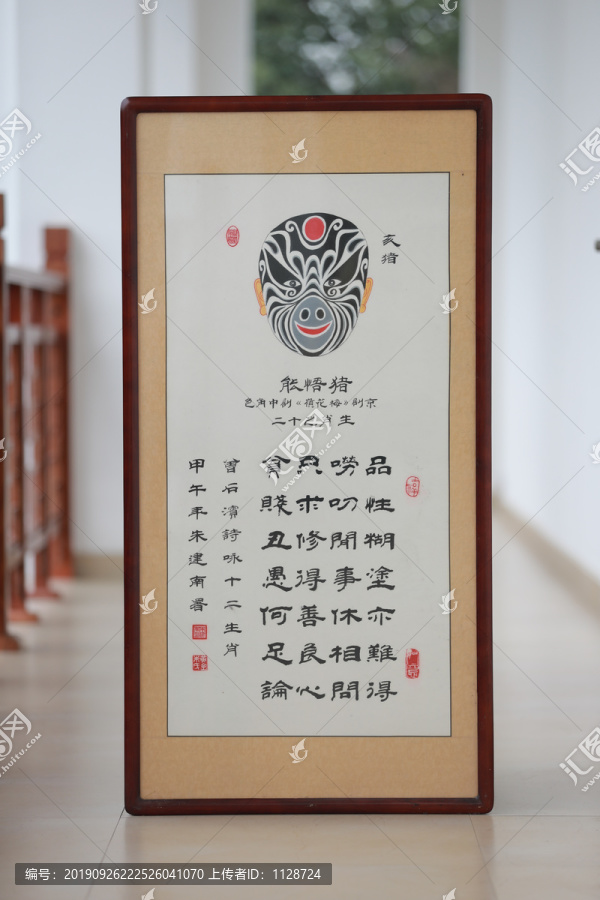 亥猪
猪悟能
京剧《梅花》剧中角色
生肖之十二
品性糊塗亦難得
嘮叨聞事休相問
只求修得善良心
貧賤丑愚何足論
曾石濱詩咏十二生肖
甲午年朱建南署
编号：20190926222526041070 上传者ID：1128724